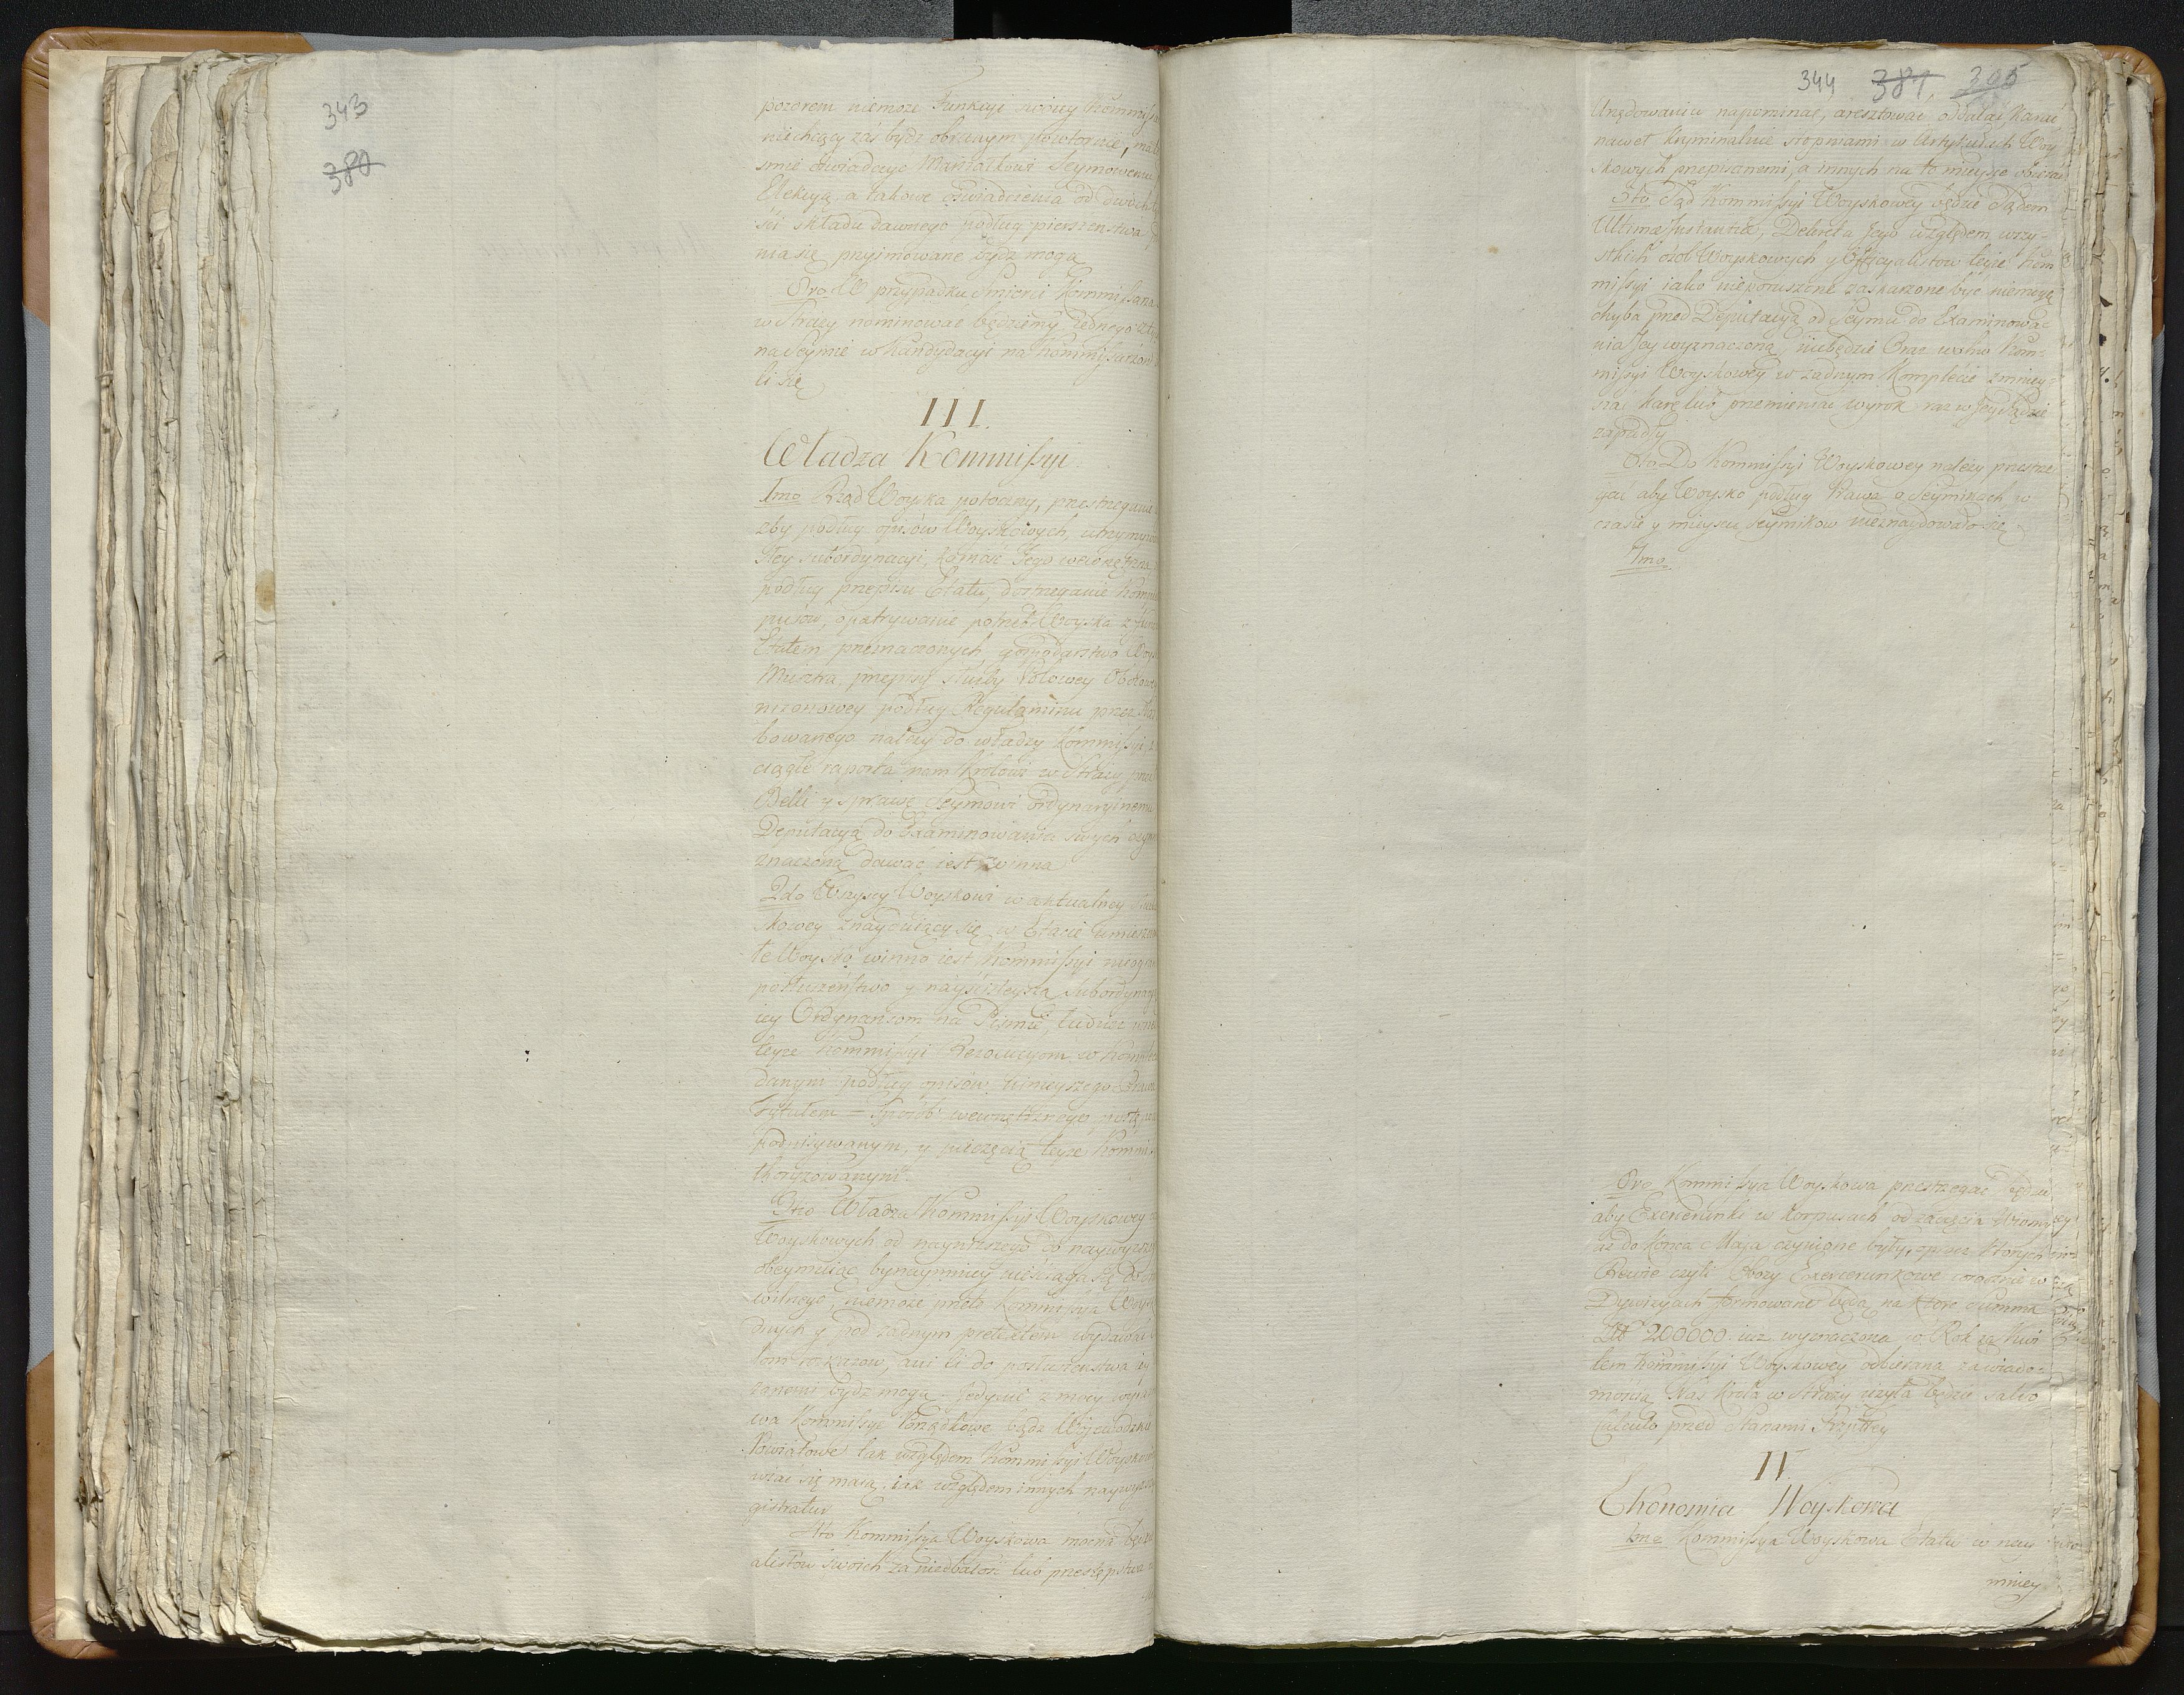 343
380
pozorem niemoze Funkcyi swoiey Kommiss
niechcący zaś bydz obranym powtornie, ma
swoie oświadczyc Marszałkowi Seymowemu
Elekcyą, a takowe oświadczenia od dwoch
ści składu dawnego podług pierszenstwa
nia się przyimowane bydz mogą
8vo W przypadku śmierci Kommissarza
w Straży nominować będziemy jednego z ty
na Seymie w Kandydacyi na Kommissarzow
li się
III.
Władza Kommissyi
1mo Rząd Woyska potoczny, przestrzeganie
aby podług opisów Woyskowych, utrzymywa
słey subordynacyi, karność Jego wewnętrzna
podług przepisu Etatu, dostrzeganie Kom
pusow, opatrywanie potrzeb Woyska z fun
Etatem przeznaczonych, gospodarstwo Woy
Musztra, przepisy służby Polowey Obozow
nizonowey podług Regulaminu przez
bowanego należy do władzy Kommissyi
ciągłe raporta nam Królowi w Straży prze
Belli y sprawę Seymowi ordynaryinemu
Deputacyą do Examinowania swych czyn
znaczoną dawać iest winna
2do Wszyscy Woyskowi w aktualney służ
skowey znayduiący się w Etacie umieszcz
łe Woysko winno iest Kommissyi
posłuszeństwo y nayściśleyszą subordynacy
iey Ordynansom na Pismie, tudziesz
teyze Kommissyi Rezolucyom w Komple
danym podług opisów ninieyszego Prawa
Tytułem = Sposób wewnętrznego postępow
podpisywanym, y pieczęcią teyze Kommis
thoryzowanym.
3tio Władza Kommissyi Woyskowey
Woyskowych od nayniższego do naywyższe
obeymuiąc bynaymniey nieściąga się do
wilnego, niemoze przeto Kommissya Woys
dnych y pod zadnym pretextem wydawać
łom rozkazow, ani ci do posłuszenstwa
zanemi bydz mogą - Jedynie z mocy
wa Kommissye Porządkowe bądz Wojewodzkie
Powiatowe tak względem Kommissyi Woyskow
wiać się maią, iak względem innych naywyższ
gistratur
4to Kommissya Woyskowa mocna będzie
alistów swoich za niedbałość lub przestępstwa
344 381 305
Urzędowaniu napominać, aresztować, oddalać, karać
nawet kryminalnie stopniami w Artykułach Woy
skowych przepisanemi, a innych na to mieysce obierać
5to Sąd Kommissyi Woyskowey będzie Sądem
Ultimæ Instantiæ, Dekreta Jego względem wszy-
stkich osób Woyskowych y Officyalistow teyże Kom
missyi iako niewzruszone zaskarzone być niemogą
chyba przed Deputacyą od Seymu do Examinowa-
nia Jey wyznaczoną, niebędzie Oraz wolno Kom-
missyi Woyskowey w zadnym Komplecie zmniey-
szać karę lub przemieniać wyrok raz w Jey Sądzie
zapadły
6to Do Kommissyi Woyskowey należy przestrze
gać aby Woysko podług Prawa o Seymikach w
czasie y mieyscu Seymikow nieznaydowało się
7mo
8vo Kommissya Woyskowa przestrzegać będzie
aby Exercerunki w Korpusach od zaczęcia Wiosny
aż do końca Maja czynione były, oprocz ktorych
Rewie czyli Obozy Exercerunkowe corocznie w
Dywizyach formowane będą, na ktore Summa
Zł 200000 iuz wyznaczona co Rok za kwi
tem Kommissyi Woyskowey odbierana za wiado-
mością Nas Króla w Straży użyta będzie salvo
calculo przed Stanami Rzplttey
IV
Ekonomia Woyskowa
1mo Kommissya Woyskowa Etatu w nay
mniey